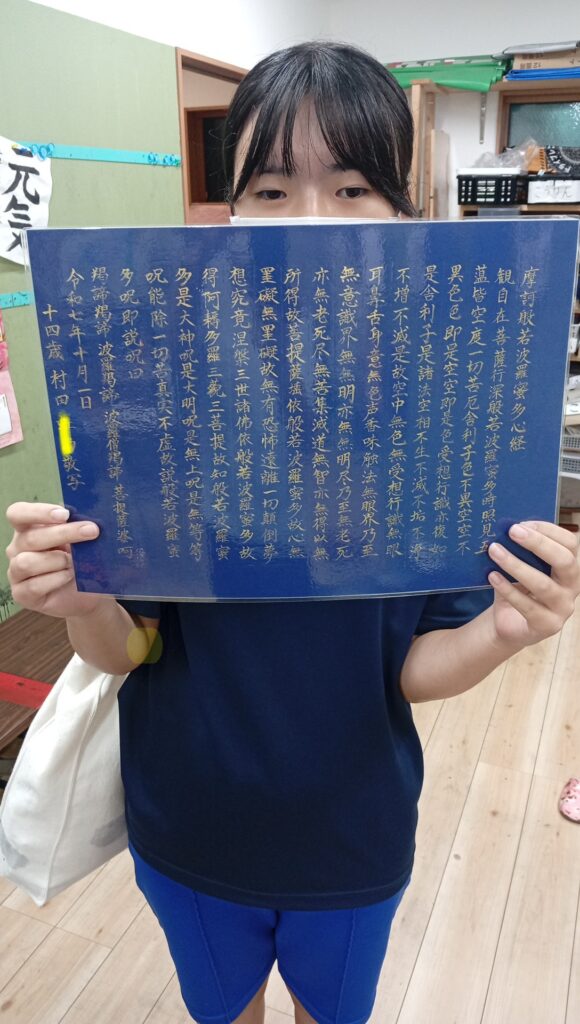 摩訶般若波羅蜜多心経
観自在菩薩行深般若波羅蜜多時照見五
蘊皆空度一切苦厄舎利子色不異空空不
異色色即是空空即是色受想行識亦復如
是舎利子是諸法空相不生不滅不垢不浄
不増不減是故空中無色無受想行識無眼
耳鼻舌身意無色声香味触法無眼界乃至
無意識界無無明亦無無明尽乃至無老死
亦無老死尽無苦集滅道無智亦無得以無
所得故菩提薩埵依般若波羅蜜多故心無
罣礙無罣礙故無有恐怖遠離一切顛倒夢
想究竟涅槃三世諸佛依般若波羅蜜多故
得阿耨多羅三藐三菩提故知般若波羅蜜
多是大神呪是大明呪是無上呪是無等等
呪能除一切苦真実不虚故説般若波羅蜜
多呪即説呪曰
羯諦羯諦 波羅羯諦 波羅僧羯諦 菩提薩婆訶
令和七年十月一日
十四歳 村田 敬写
元気